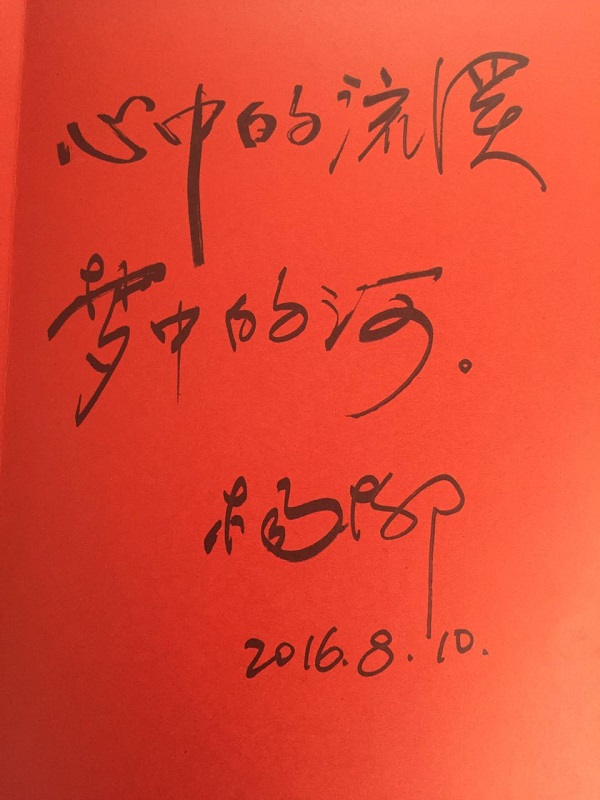 心中的流溪
梦中的河。
杨柳
2016.8.10.